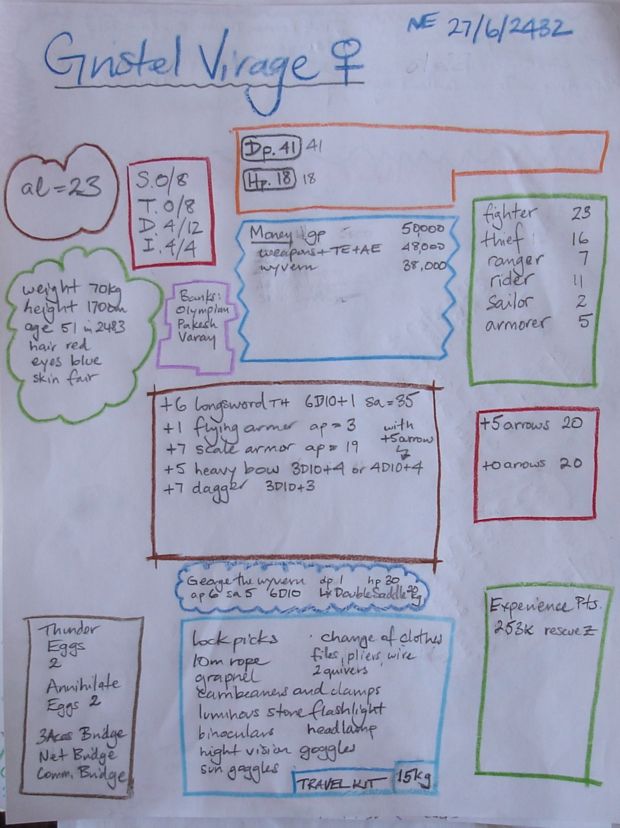 NE 27/6/2432
Gristel Virage ♀
Dp. 41 41
Hp. 18 18
al = 23
S. 0/8
T. 0/8
D. 4/12
I. 4/4
Money gp 50,000
weapons + TE + AE 48,000
wyvern 38,000
fighter 23
thief 16
ranger 7
rider 11
sailor 2
armorer 5
weight 70kg
height 170cm
age 51 in 2483
hair red
eyes blue
skin fair
Banks:
Olympian
Pakesh
Varay
+6 longsword TH 6D10+1 sa = 35
+1 flying armor ap = 3 with
+7 scale armor ap = 19 +5 arrow
+5 heavy bow 3D10+4 or 4D10+4
+7 dagger 3D10+3
+5 arrows 20
+0 arrows 20
George the wyvern dp. 1 hp 30
ap 6 sa 5 6D10 Double Saddle
Thunder
Eggs
2
Annihilate
Eggs 2
3 Aces Bridge
Net Bridge
Comm. Bridge
lock picks · change of clothes
10m rope files, pliers, wire
grapnel 2 quivers
carribeaners and clamps
luminous stone flashlight
binoculars headlamp
night vision goggles
sun goggles
TRAVEL KIT 15kg
Experience Pts.
253k rescue Z